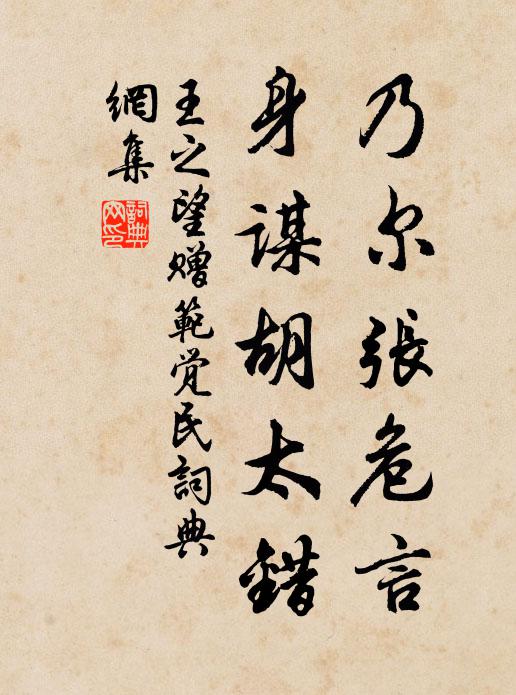 乃尔張危言
身謀胡太錯
王之望贈範觉民詞典
網集
詞典
网印